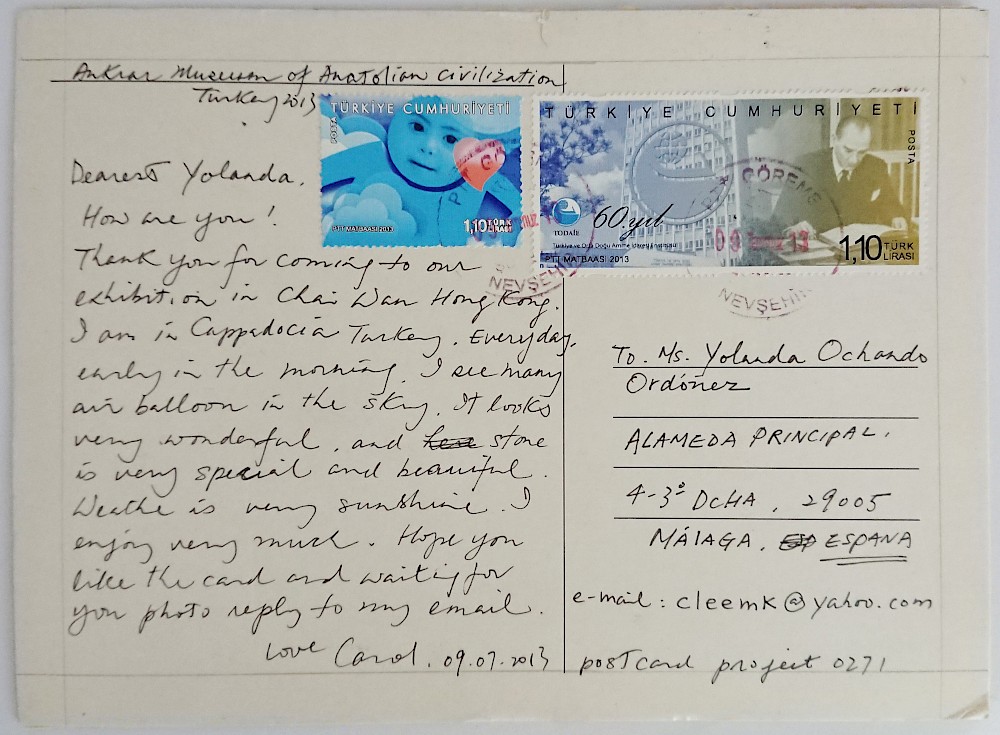 Ankrar Museum of Anatolian civilization
Turkey 2013
Dearest Yolanda.
How are you!
Thank you for coming to our
exhibition in Chai Wan Hong Kong.
I am in Cappadocia Turkey. Everyday,
early in the morning, I see many
air balloon in the sky. It looks
very wonderful. and stone
is very special and beautiful.
Weathe is very sunshine. I
enjoy very much. Hope you
like the card and waiting for
you photo reply to my email.
Love Carol. 09.07.2013
TÜRKİYE CUMHURİYETİ
POSTA
PTT MATBAASI 2013
1,10 TÜRK LİRASI
TÜRKİYE CUMHURİYETİ
POSTA
TODAİE
60.yıl
Türkiye ve Orta Doğu Amme İdaresi Enstitüsü
PTT MATBAASI 2013
1,10 TÜRK
LİRASI
GÖREME
NEVŞEHİR
NEVŞEHİR
To. Ms. Yolanda Ochando
Ordóñez
ALAMEDA PRINCIPAL.
4-3º DCHA, 29005
MÁLAGA. ESPANA
e-mail: cleemk@yahoo.com
postcard project 0271